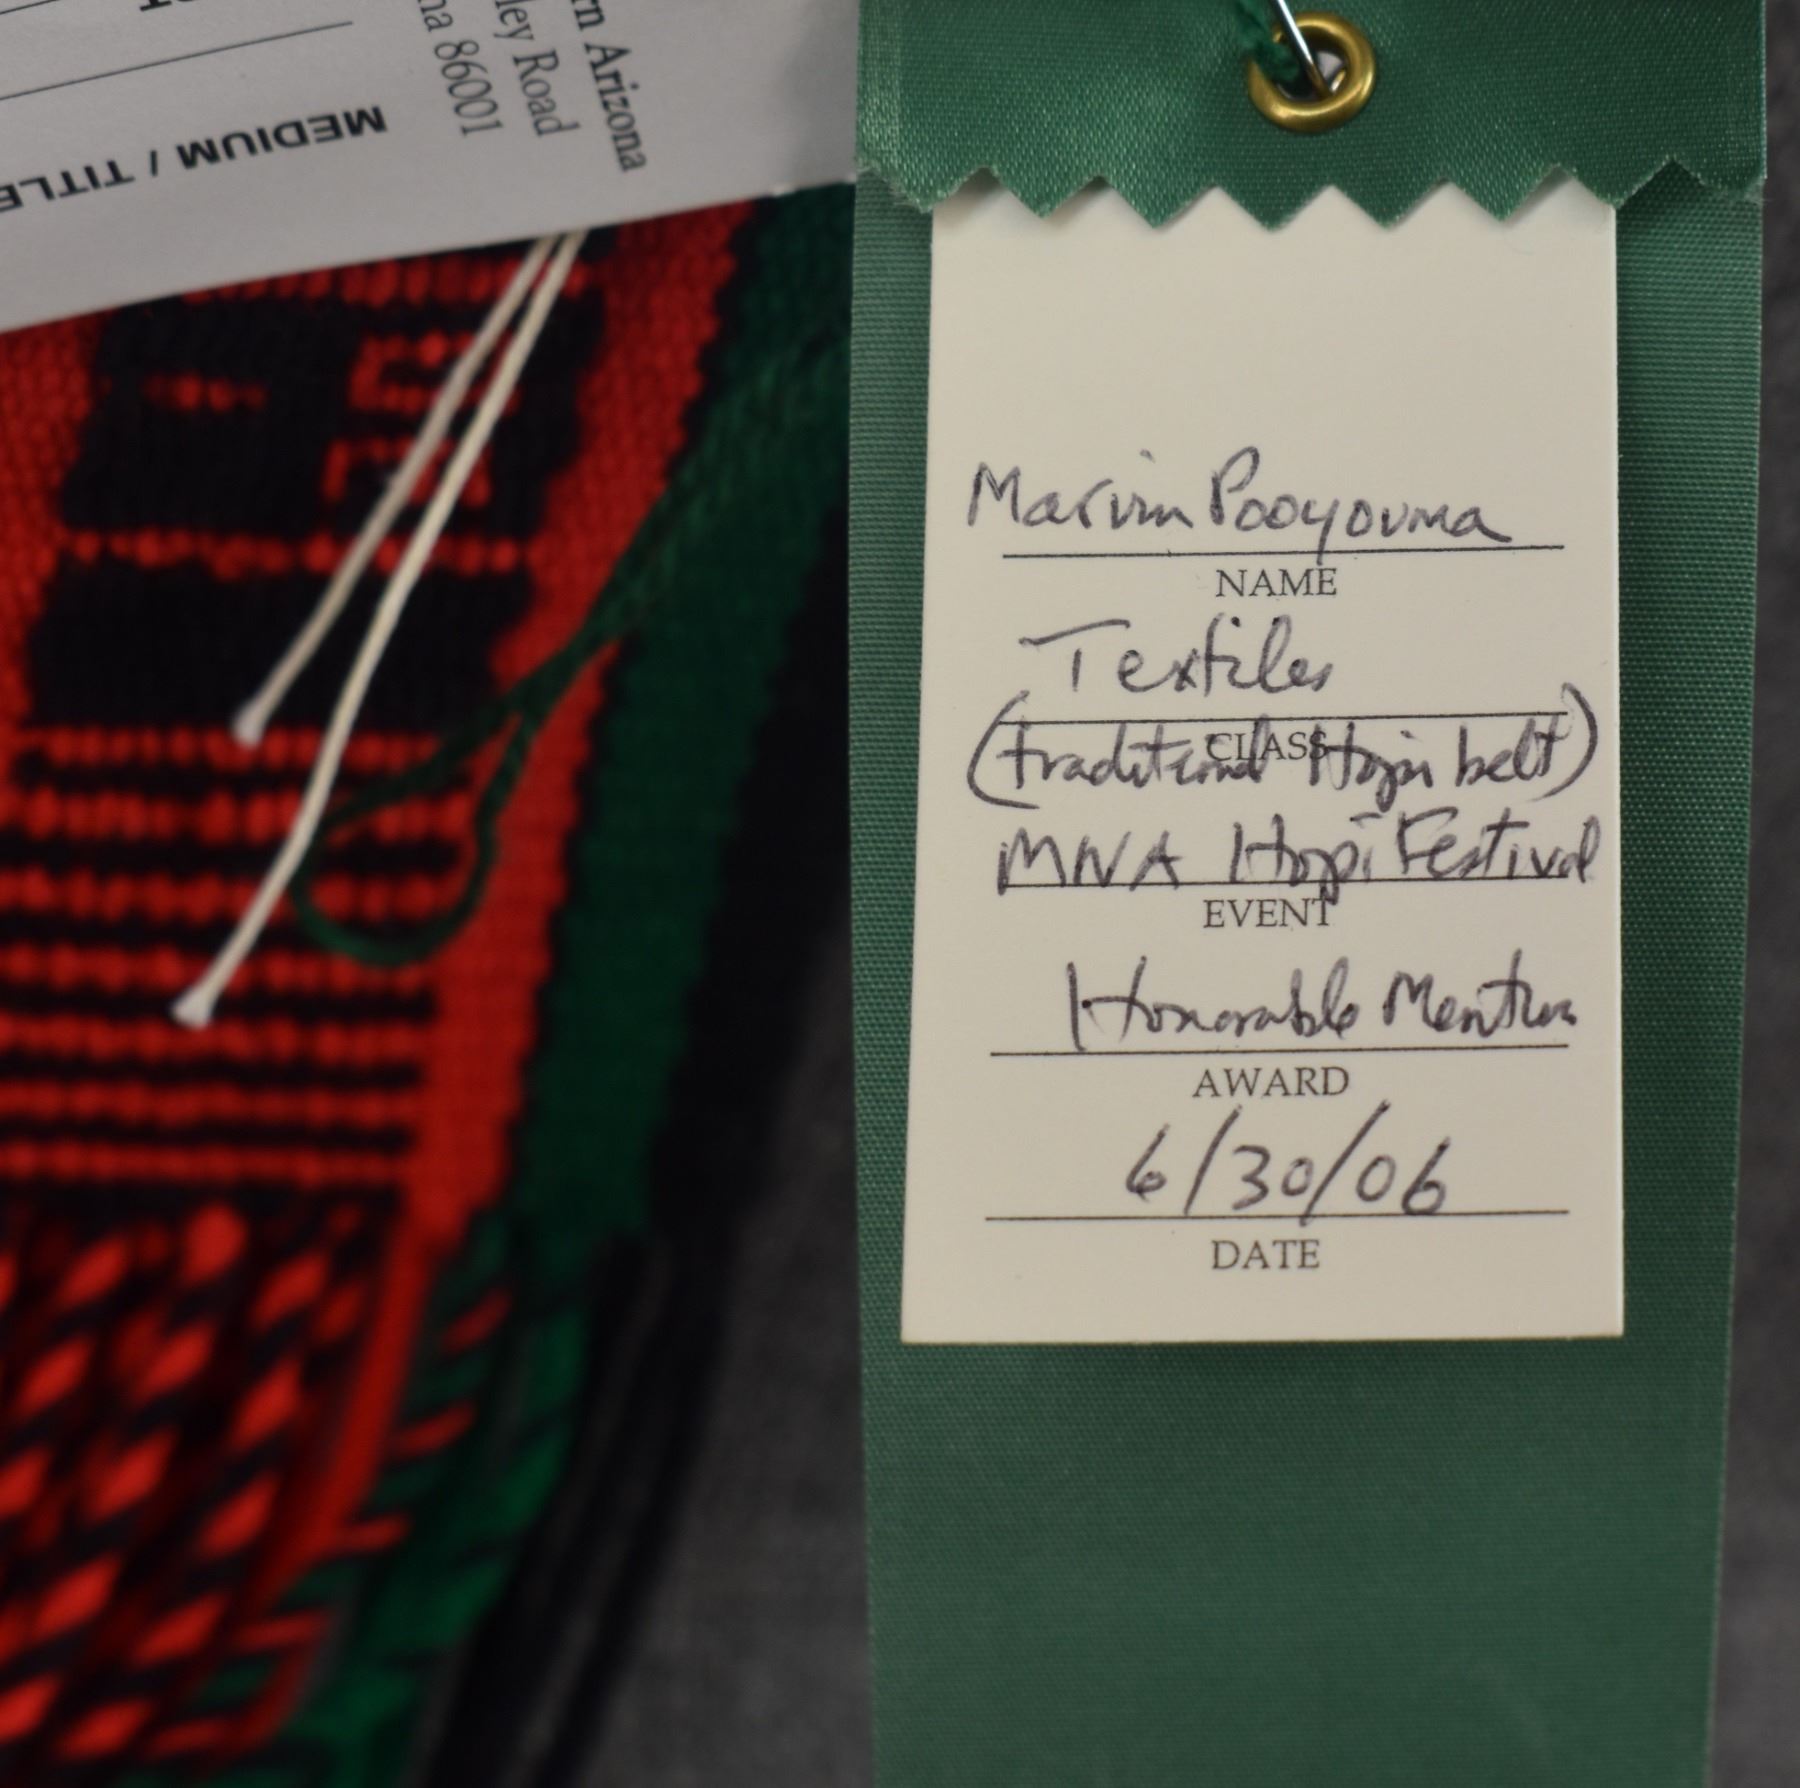 rn Arizona
ley Road
na 86001
MEDIUM / TITLE
Marvin Pooyouma
NAME
Textiles
CLASS
(traditional Hopi belt)
MNA Hopi Festival
EVENT
Honorable Mention
AWARD
6/30/06
DATE